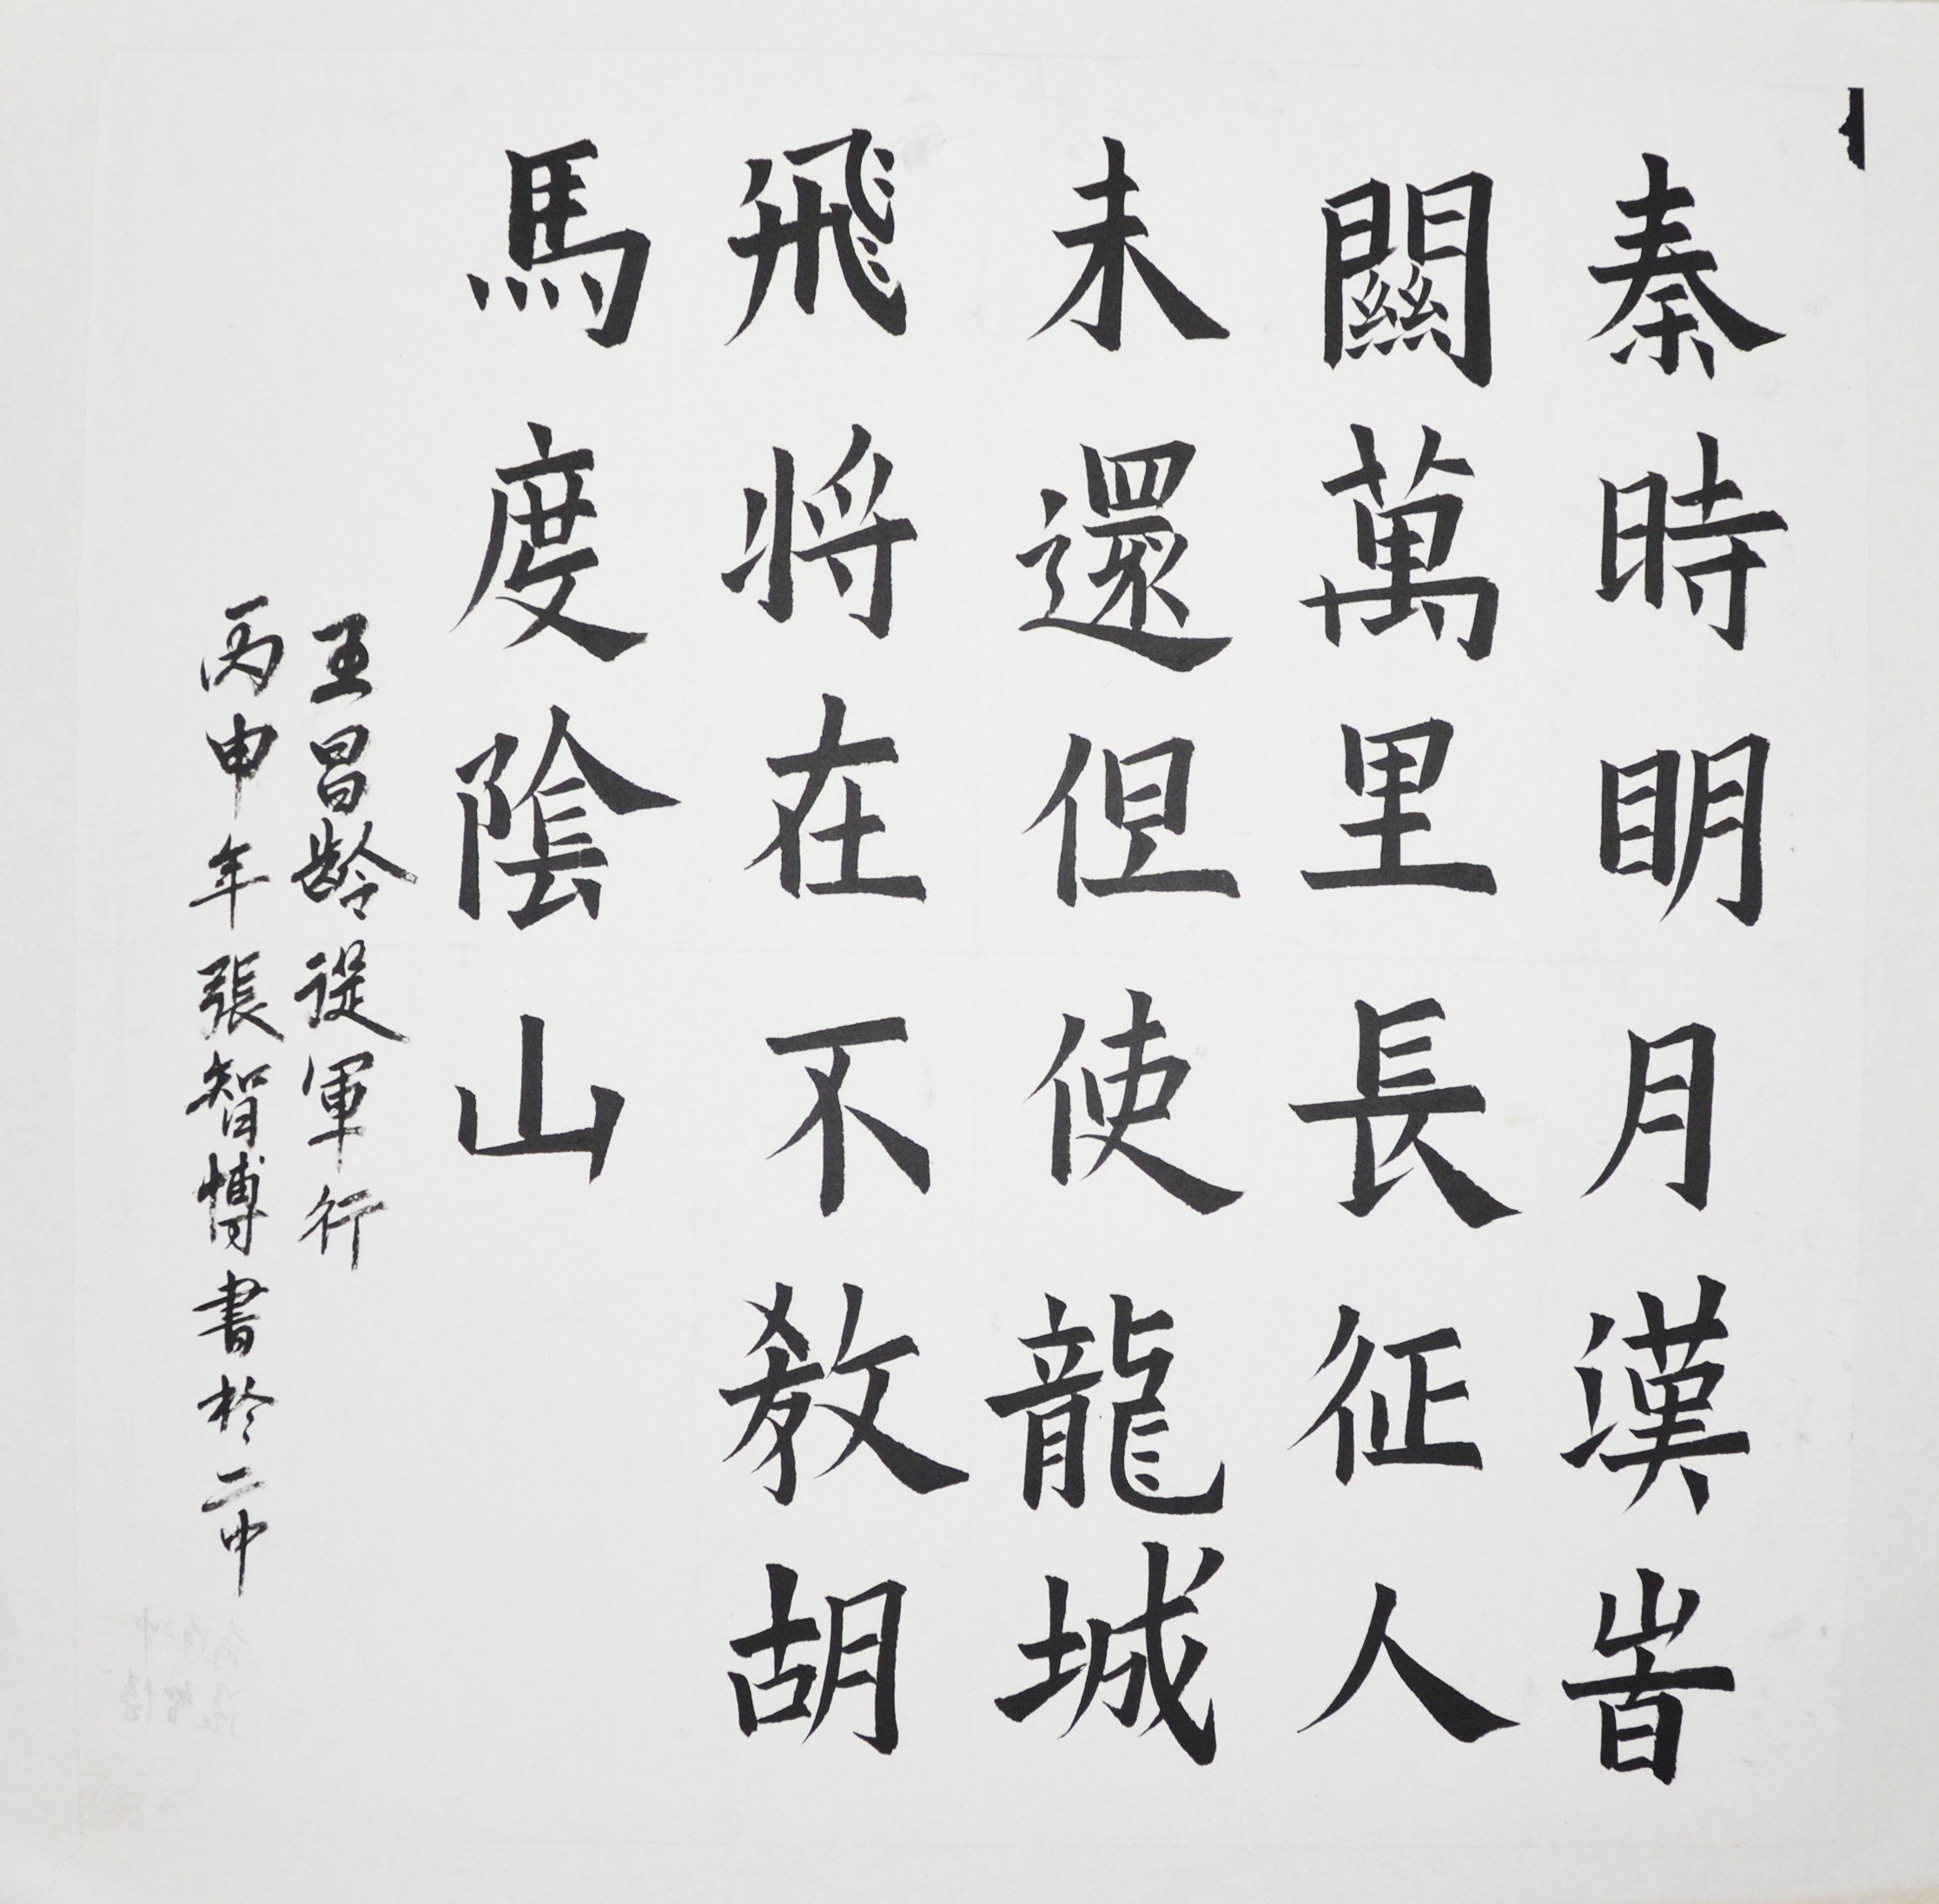 秦時明月漢峕
關萬里長征人
未還但使龍城
飛将在不教胡
馬度陰山
王昌齡從軍行
丙申年張智博書於二中